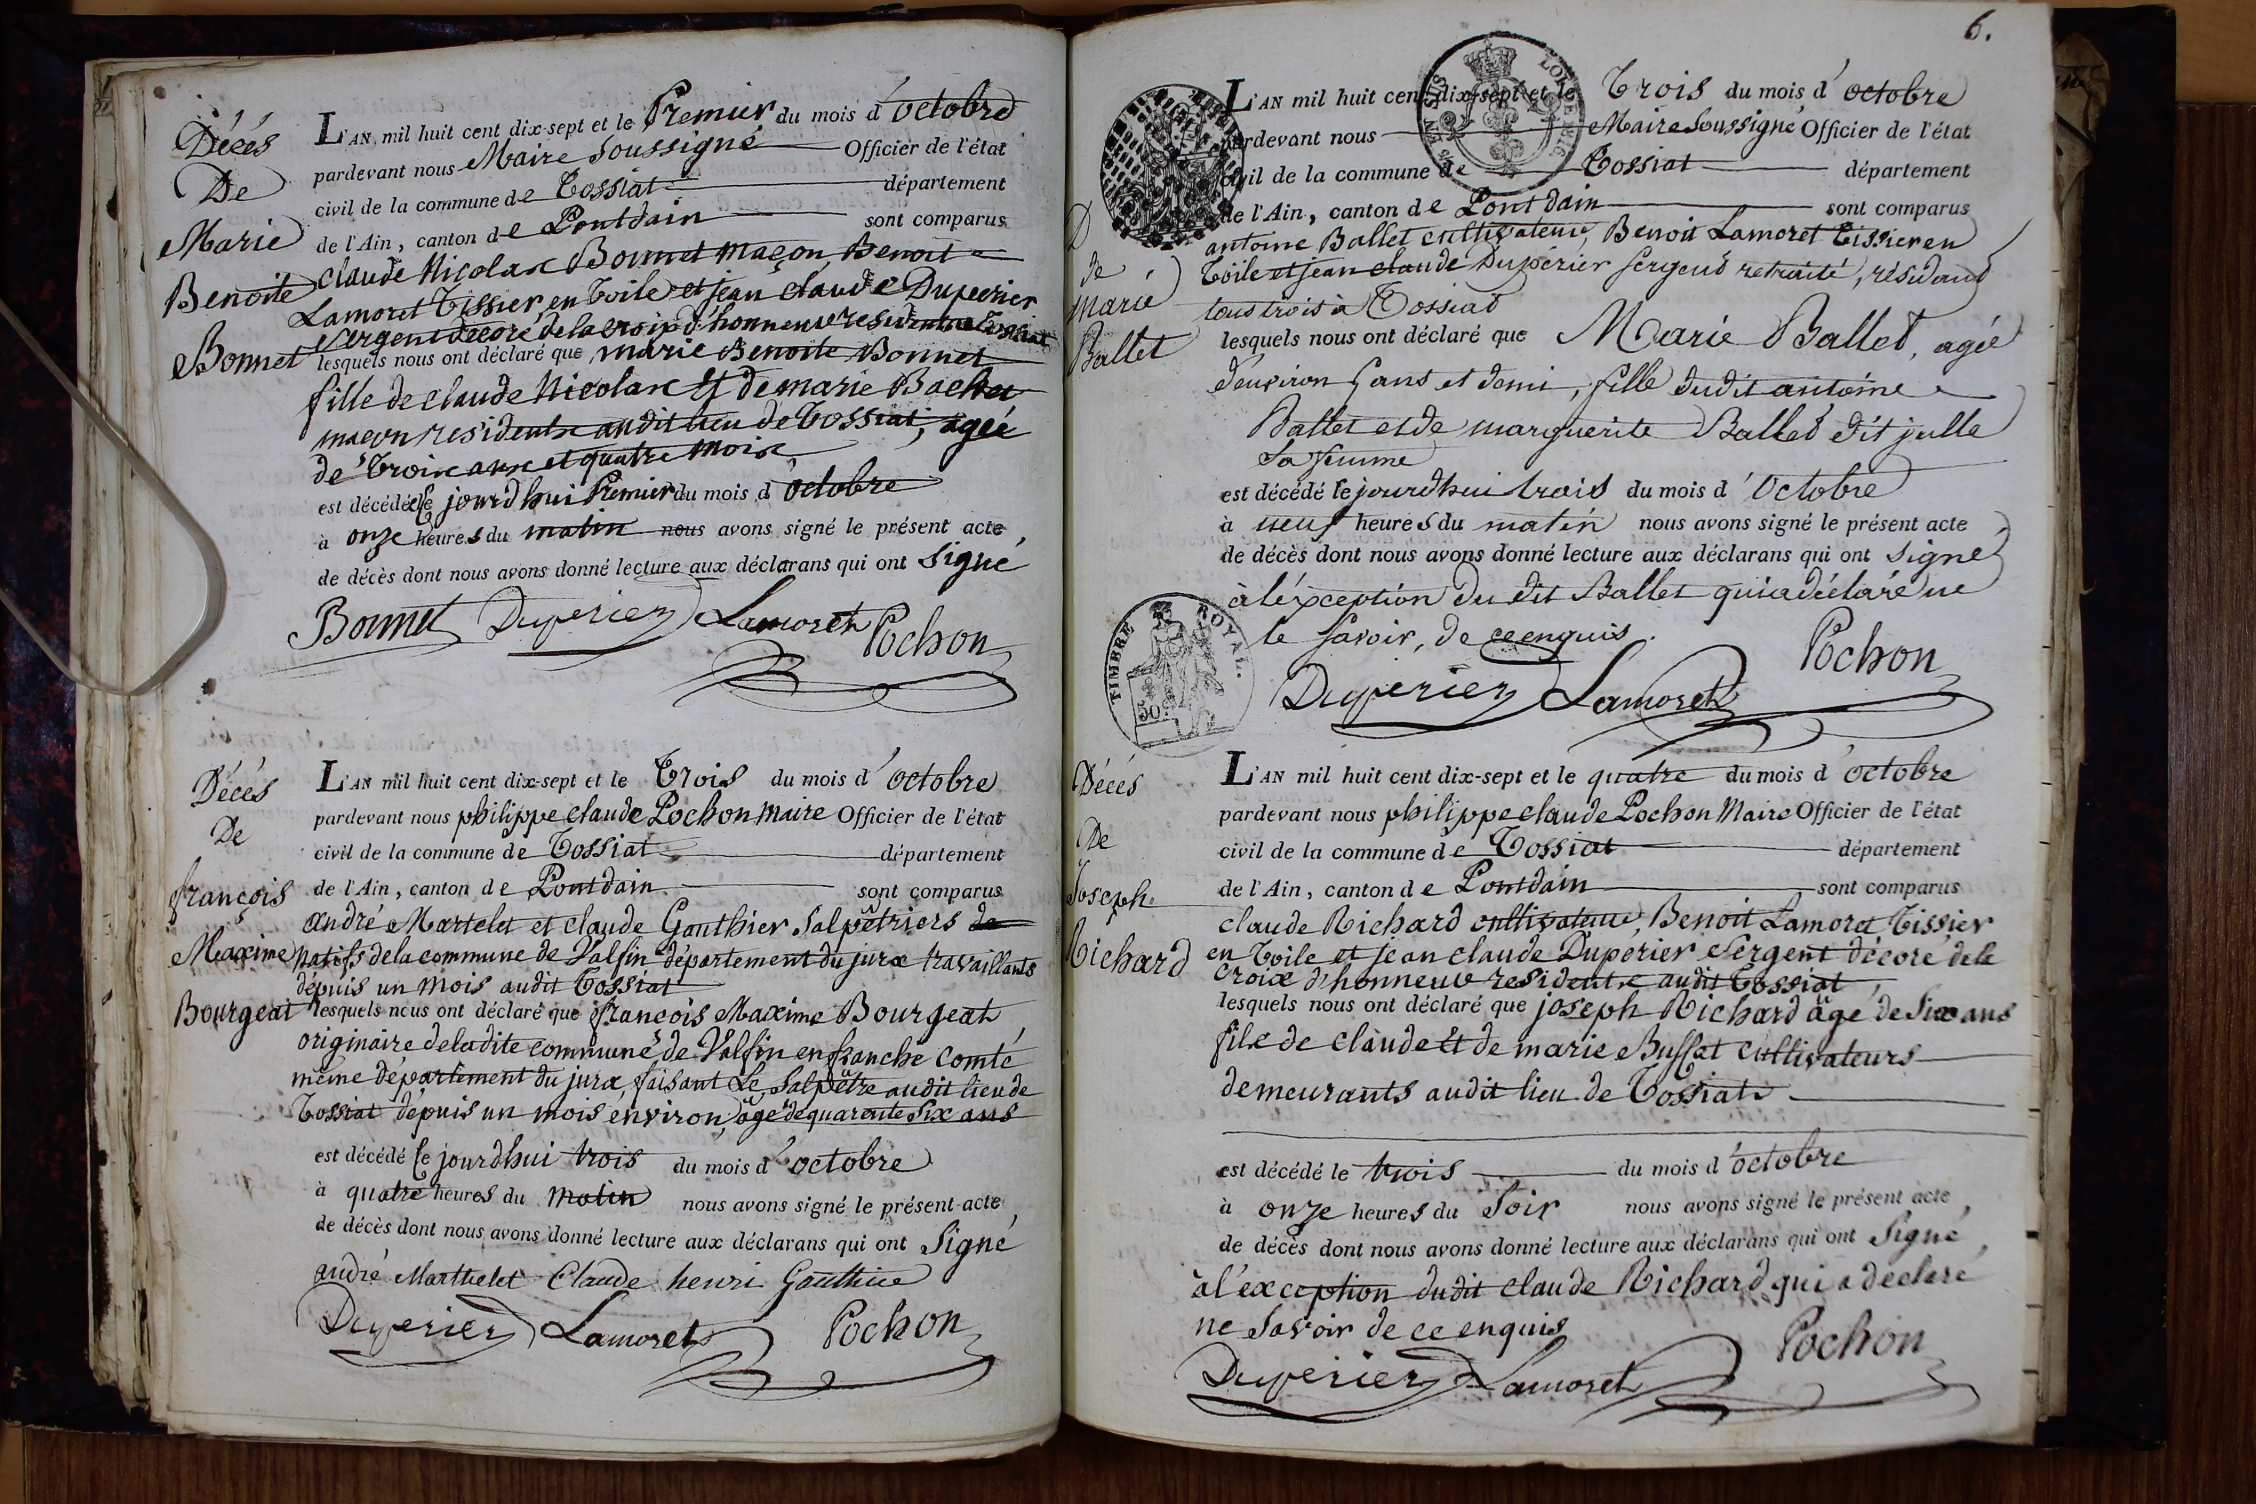 Décés
De
Marie
Benoite
Bonnet
L'AN mil huit cent dix-sept et le Premier du mois d'octobre
pardevant nous Maire Soussigné Officier de l'état
civil de la commune de Tossiat département
de l'Ain, canton de Pontdain sont comparus
claude Nicolas Bonnet maçon, Benoit
Lamoret Tissier en Toile et jean claude Duperier
Sergent décoré de la croix d'honneur residents a Tossiat
lesquels nous ont déclaré que, marie Benoite Bonnet
fille de claude Nicolas et de marie Bachu
maçon residents audit lieu de Tossiat, agée
de Trois ans et quatre mois
est décédée le jourd'hui Premier du mois d'octobre
à onze heures du matin nous avons signé le présent acte
de décès dont nous avons donné lecture aux déclarans qui ont signé
Bonnet Duperier Lamoret Pochon
Décés
De
françois
Maxime
Bourgeat
L'AN mil huit cent dix-sept et le Trois du mois d'octobre
pardevant nous philippe claude Pochon maire Officier de l'état
civil de la commune de Tossiat département
de l'Ain, canton de Pontdain sont comparus
andré Martelet et claude Gauthier Salpêtriers
natifs de la commune de Valfin département du jura travaillants
dépuis un mois audit Tossiat
lesquels nous ont déclaré que françois Maxime Bourgeat
originaire de ladite commune de Valfin en franche comté
même département du jura, faisant le Salpêtre audit lieu de
Tossiat dépuis un mois environ, âgé de quarente Six ans
est décédé le jourd'hui trois du mois d'octobre
à quatre heures du matin nous avons signé le présent acte
de décès dont nous avons donné lecture aux déclarans qui ont Signé
andré Marthelet Claude henri Gauthier
Duperier Lamoret Pochon
6.
D
de
marie
Ballet
L'AN mil huit cent dix-sept et le Trois du mois d'octobre
pardevant nous Maire Soussigné Officier de l'état
civil de la commune de Tossiat département
de l'Ain, canton de Pont dain sont comparus
antoine Ballet cultivateur, Benoit Lamoret Tissier en
Toile et jean claude Duperier Sergent retraité, résidans
tous trois à Tossiat
lesquels nous ont déclaré que Marie Ballet, agée
d'environ 5 ans et demi, fille dudit antoine
Ballet et de marguerite Ballet dit julle
Sa femme
est décédé le jourd'hui trois du mois d'Octobre
à neuf heures du matin nous avons signé le présent acte
de décès dont nous avons donné lecture aux déclarans qui ont signé
à l'éxception du dit Ballet qui a déclaré ne
le savoir, de ce enquis.
TIMBRE ROYAL.
50
Duperier Lamoret Pochon
Décés
De
Joseph
Richard
L'AN mil huit cent dix-sept et le quatre du mois d'octobre
pardevant nous philippe claude Pochon Maire Officier de l'état
civil de la commune de Tossiat département
de l'Ain, canton de Pontdain sont comparus
claude Richard cultivateur, Benoit Lamoret Tissier
en Toile et jean claude Duperier Sergent décoré de la
croix d'honneur residents audit Tossiat
lesquels nous ont déclaré que joseph Richard âgé de Six ans
fils de claude et de marie Buffet cultivateurs
demeurants audit lieu de Tossiat
est décédé le trois du mois d'octobre
à onze heures du Soir nous avons signé le présent acte
de décès dont nous avons donné lecture aux déclarans qui ont Signé
à l'exception dudit claude Richard qui a déclaré
ne Savoir de ce enquis
Duperier Lamoret Pochon